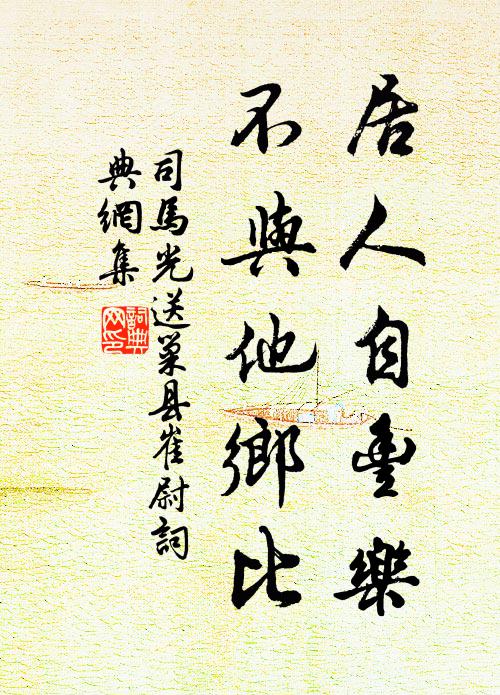 居人自豊樂
不與他鄉比
司馬光送巢县崔尉詞
典網集
詞典網印